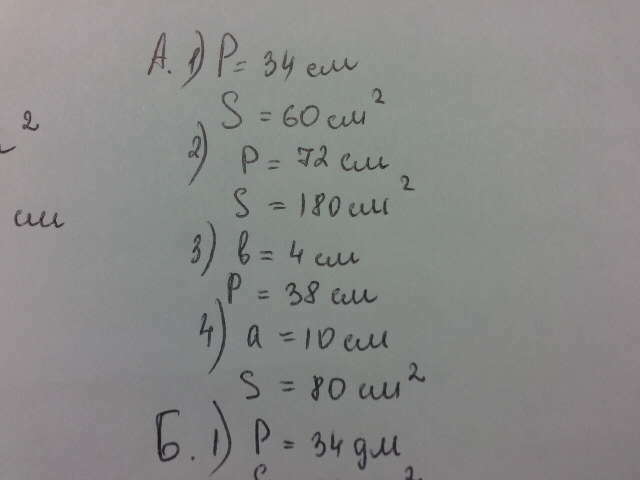 А. 1) P = 34 см
S = 60 см²
2) P = 72 см
S = 180 см²
3) в = 4 см
P = 38 см
4) a = 10 см
S = 80 см²
Б. 1) P = 34 дм
2
см